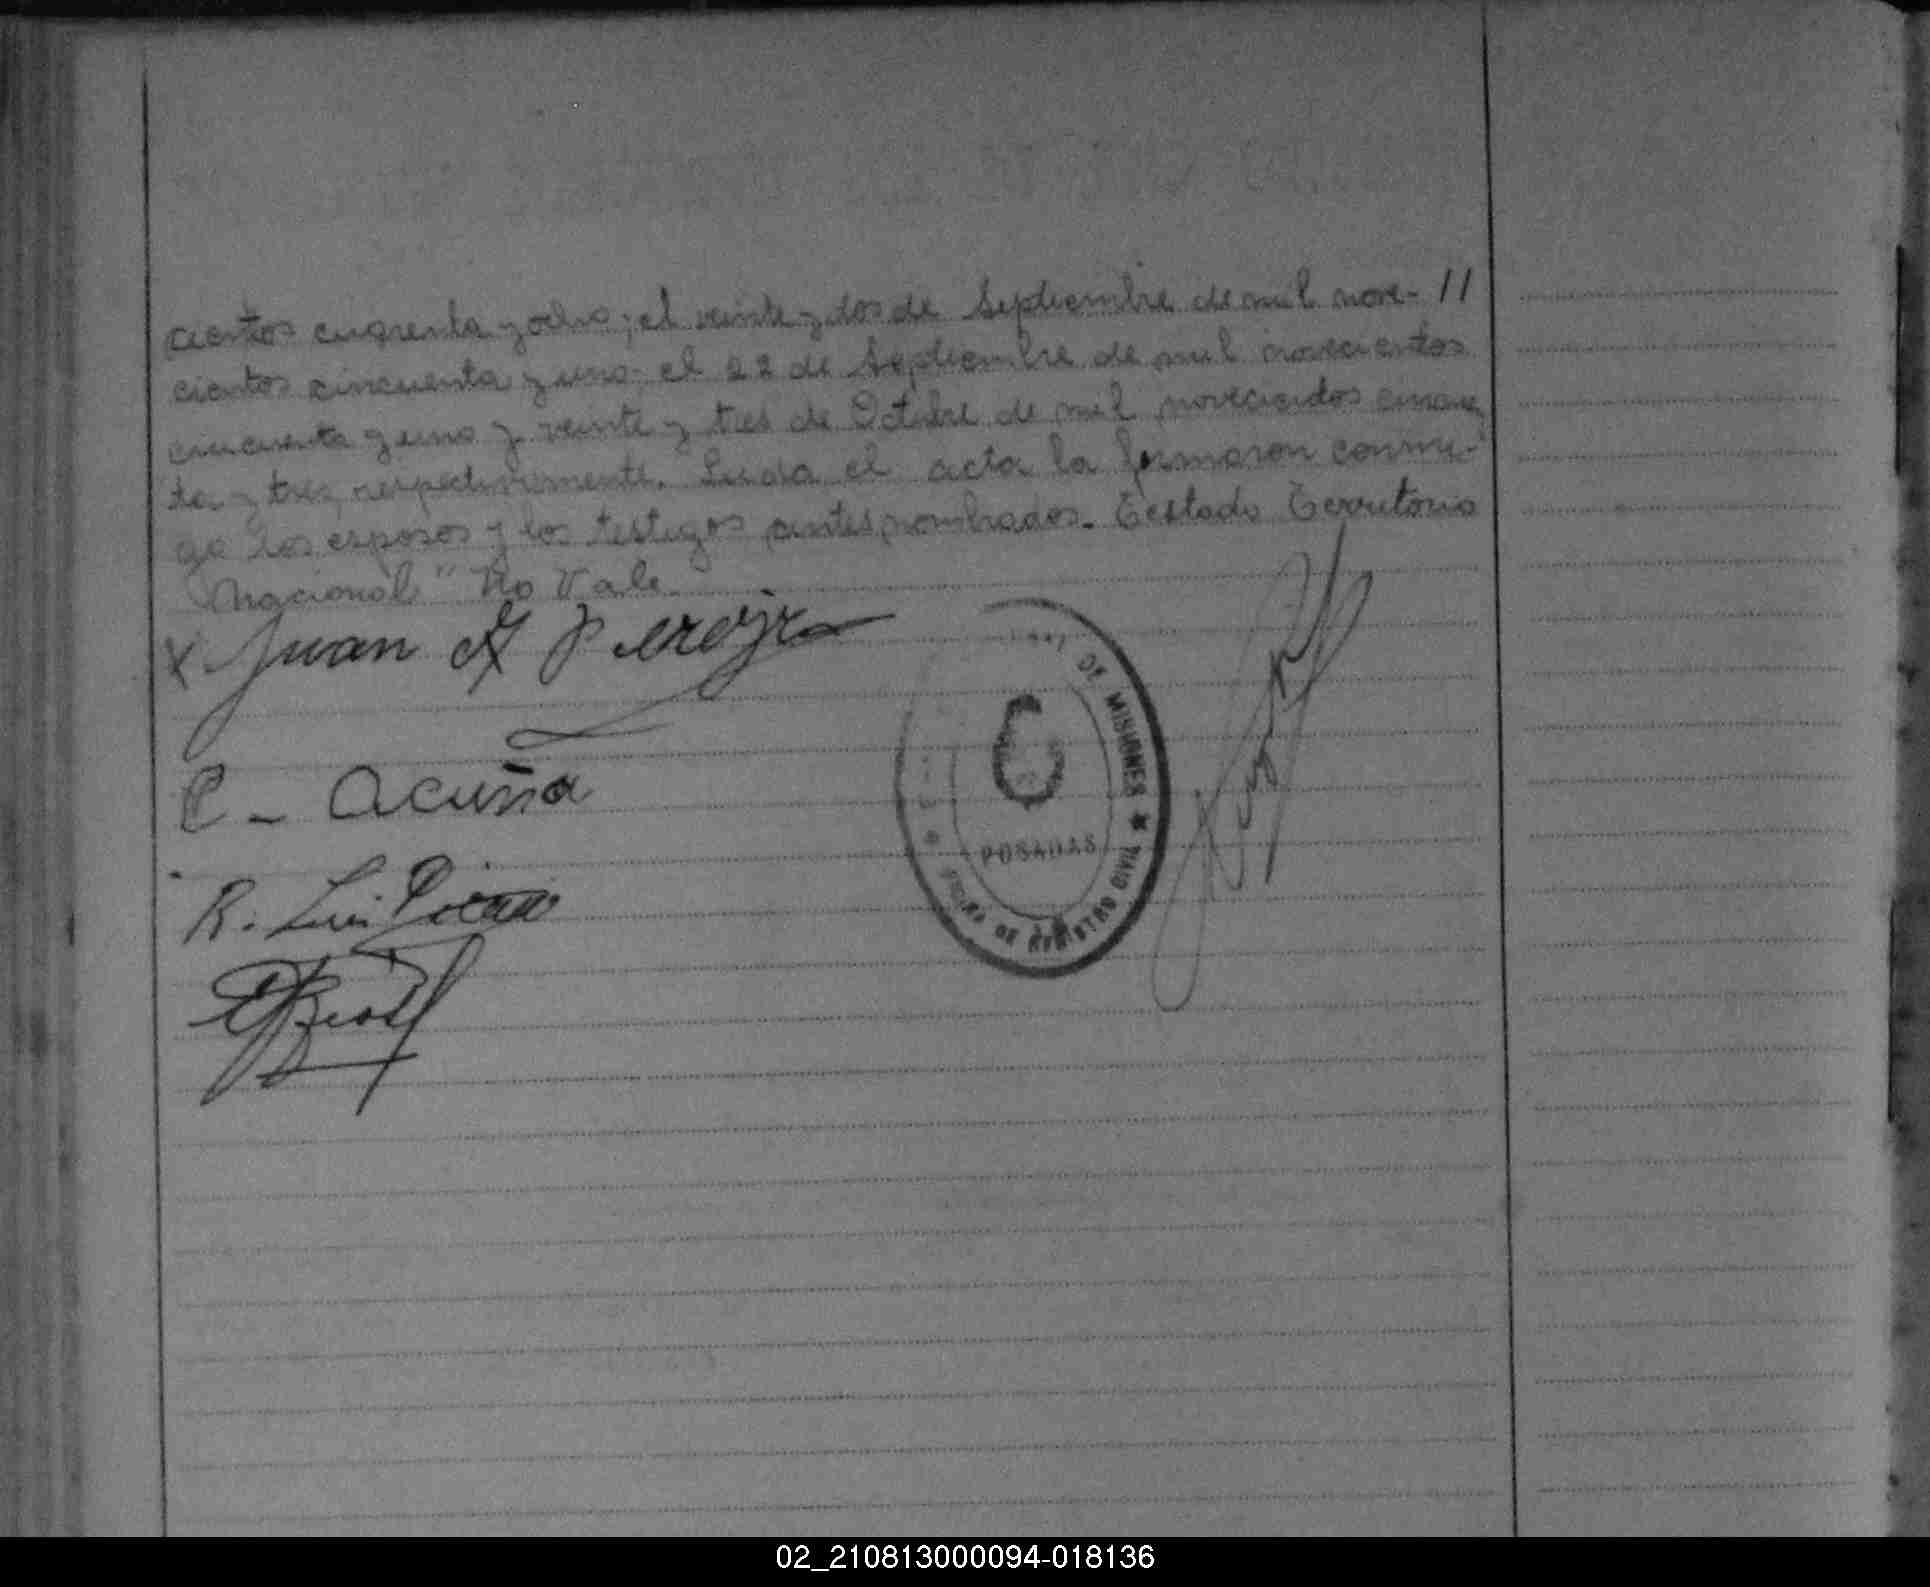 cientos cuarenta y ocho; el veinte y dos de Septiembre de mil nove- //
cientos cincuenta y uno; el 22 de Septiembre de mil novecientos
cincuenta y uno y veinte y tres de Octubre de mil novecientos cincuen
ta y tres, respectivamente. Leida el acta la firmaron conmi-
go los esposos y los testigos antes nombrados. Testado Territorio
Nacional" No Vale.
X Juan A Pereyra
C - Acuña
R. Luis
DE MISIONES ★
POSADAS
DE REGISTRO CIVIL
02_210813000094-018136